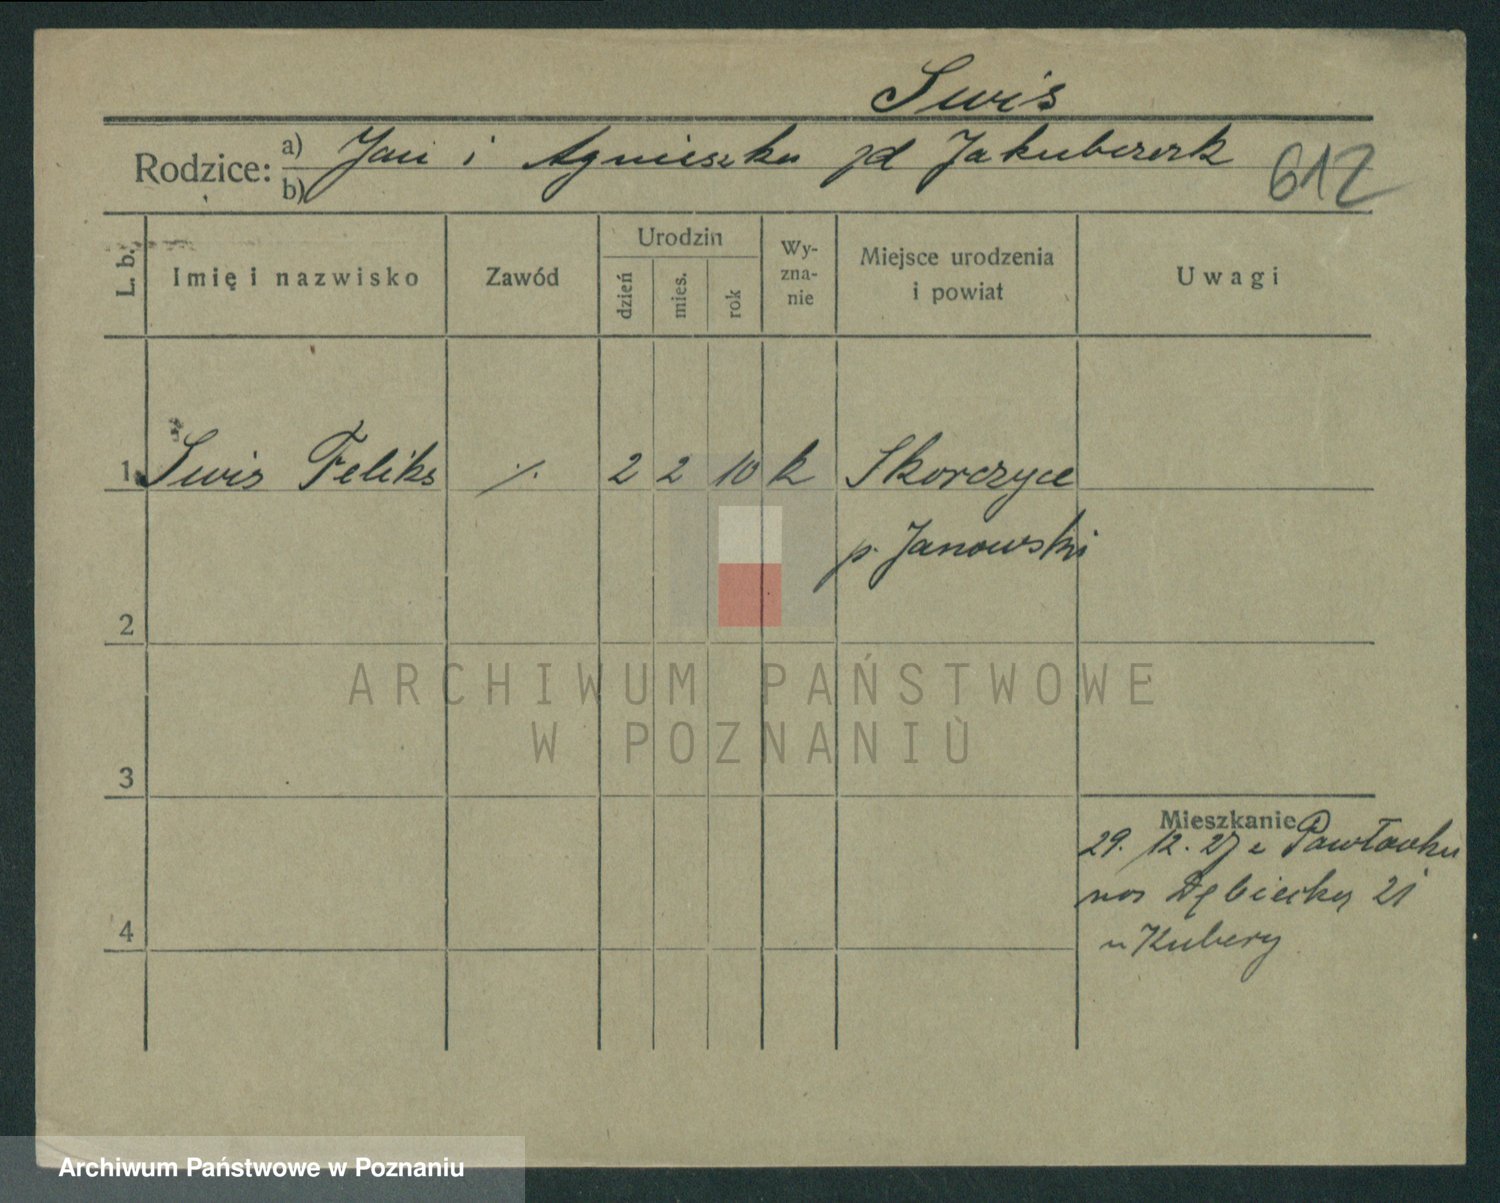 Swis
Rodzice: a) Jan i Agnieszka zd Jakubczak 612
b)
L. b. Imię i nazwisko Zawód Urodzin dzień mies. rok Wyznanie Miejsce urodzenia i powiat Uwagi
1 Swis Feliks ./. 2 2 10 k Skorczyce
p. Janowski
2
ARCHIWUM PAŃSTWOWE
W POZNANIU
3
Mieszkanie
29. 12. 27 z Pawłowka
na Dębiecką 21
4
u Kubery
Archiwum Państwowe w Poznaniu